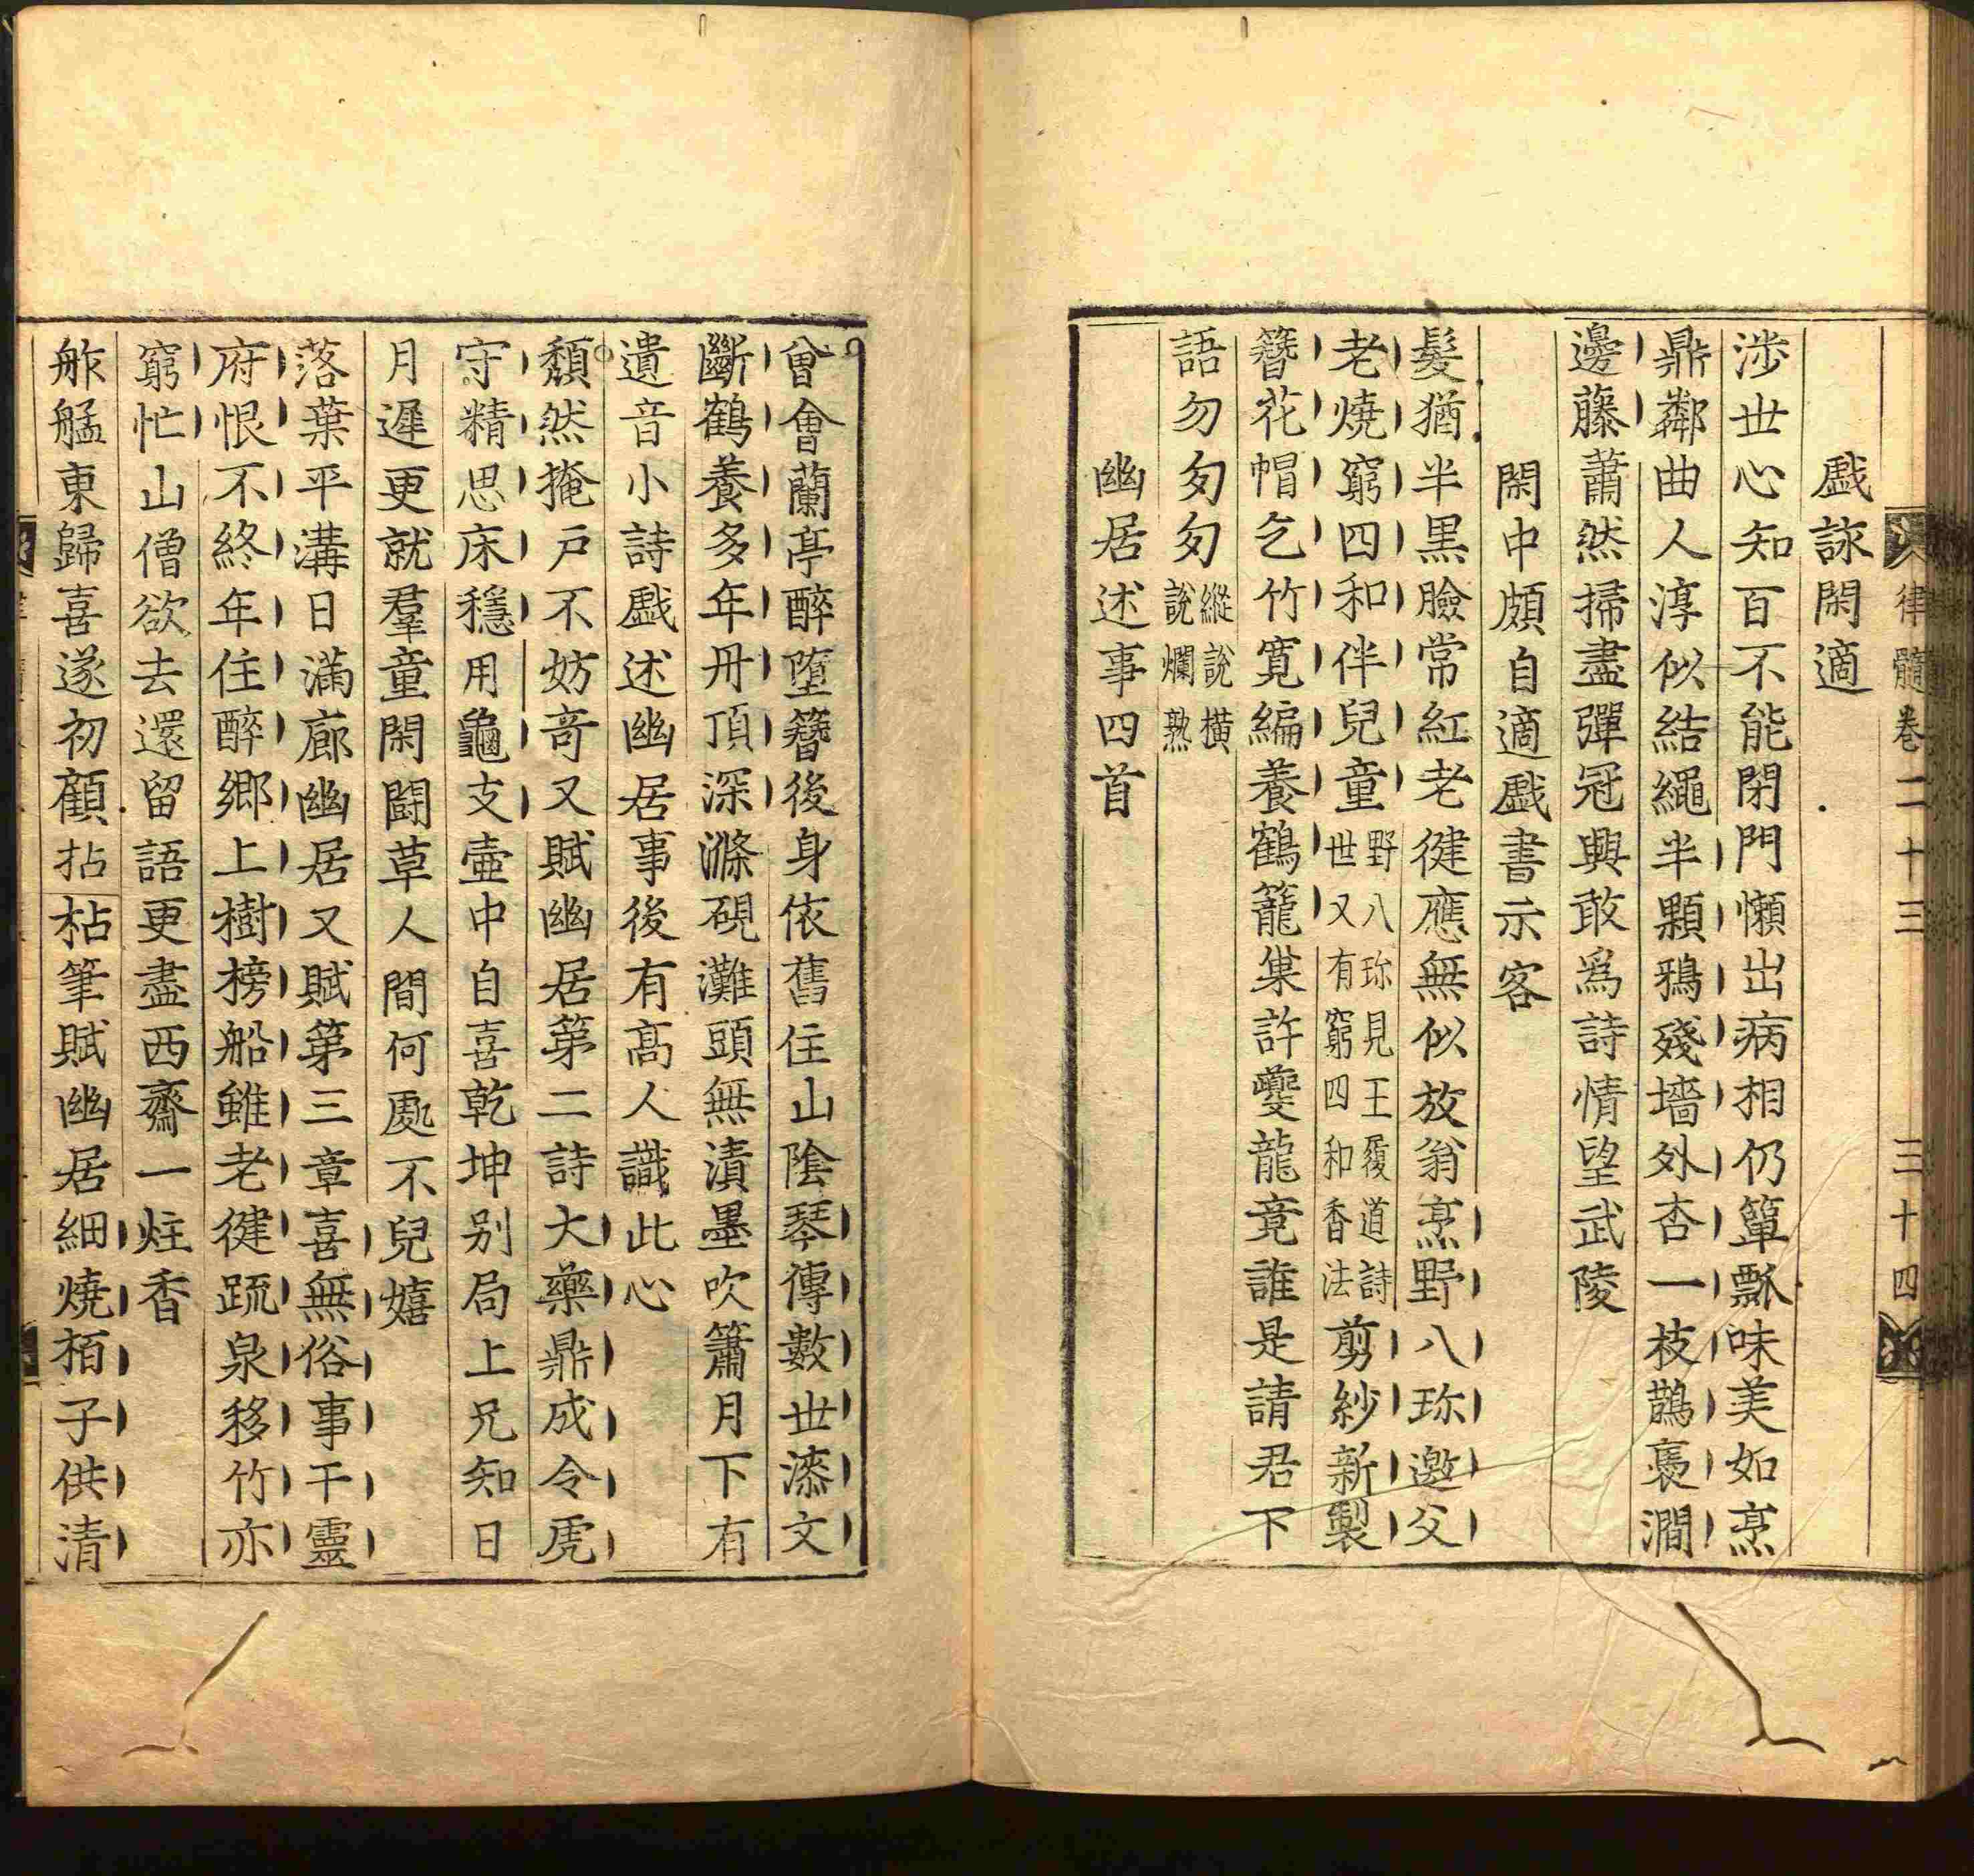 律髓卷二十三 三十四
戲詠閑適
涉世心知百不能閉門懶出病相仍簞瓢味美如烹
鼎鄰曲人淳似結繩半顆鴉殘墻外杏一枝鵲裊澗
邊藤蕭然掃盡彈冠興敢爲詩情望武陵
閑中頗自適戲書示客
髮猶半黑臉常紅老健應無似放翁烹野八珎邀父
老燒窮四和伴兒童野八珎見王履道詩世又有窮四和香法剪紗新製
簪花帽乞竹寛編養鶴籠巢許夔龍竟誰是請君下
語勿匆匆縱說橫說爛熟
幽居述事四首
曾會蘭亭醉墮簪後身依舊住山陰琴傳數世漆文
斷鶴養多年丹頂深滌硯灘頭無漬墨吹簫月下有
遺音小詩戲述幽居事後有高人識此心
頹然掩戶不妨竒又賦幽居第二詩大藥鼎成令虎
守精思床穩用龜支壷中自喜乾坤别局上兄知日
月遲更就羣童閑鬪草人間何處不兒嬉
落葉平溝日滿廊幽居又賦第三章喜無俗事干靈
府恨不終年住醉鄉上樹榜船雖老健疏泉移竹亦
窮忙山僧欲去還留語更盡西齋一炷香
舴艋東歸喜遂初顧拈枯筆賦幽居細燒栢子供清